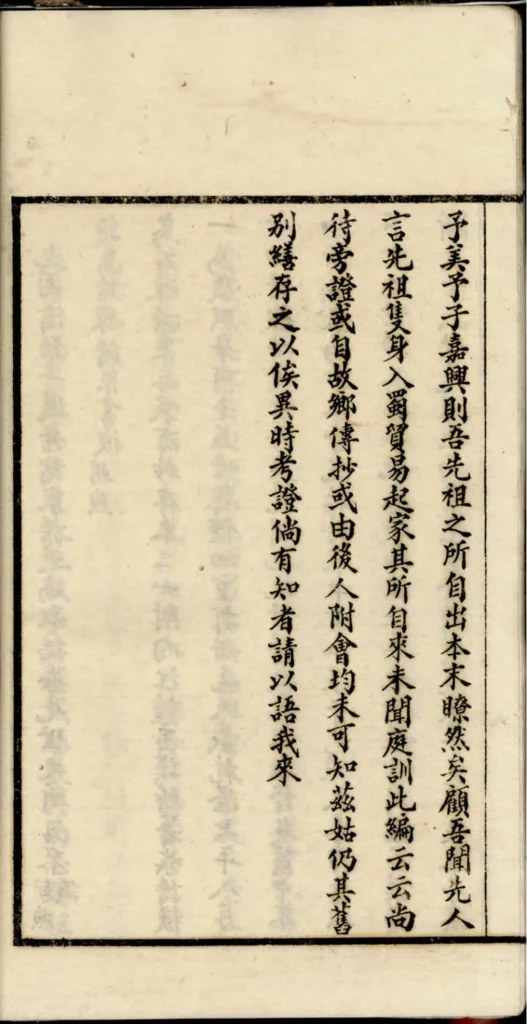 予美予子嘉興則吾先祖之所自出本末瞭然矣顧吾聞先人
言先祖隻身入蜀貿易起家其所自來未聞庭訓此編云云尚
待旁證或自故鄉傳抄或由後人附會均未可知茲姑仍其舊
別繕存之以俟異時考證倘有知者請以語我來